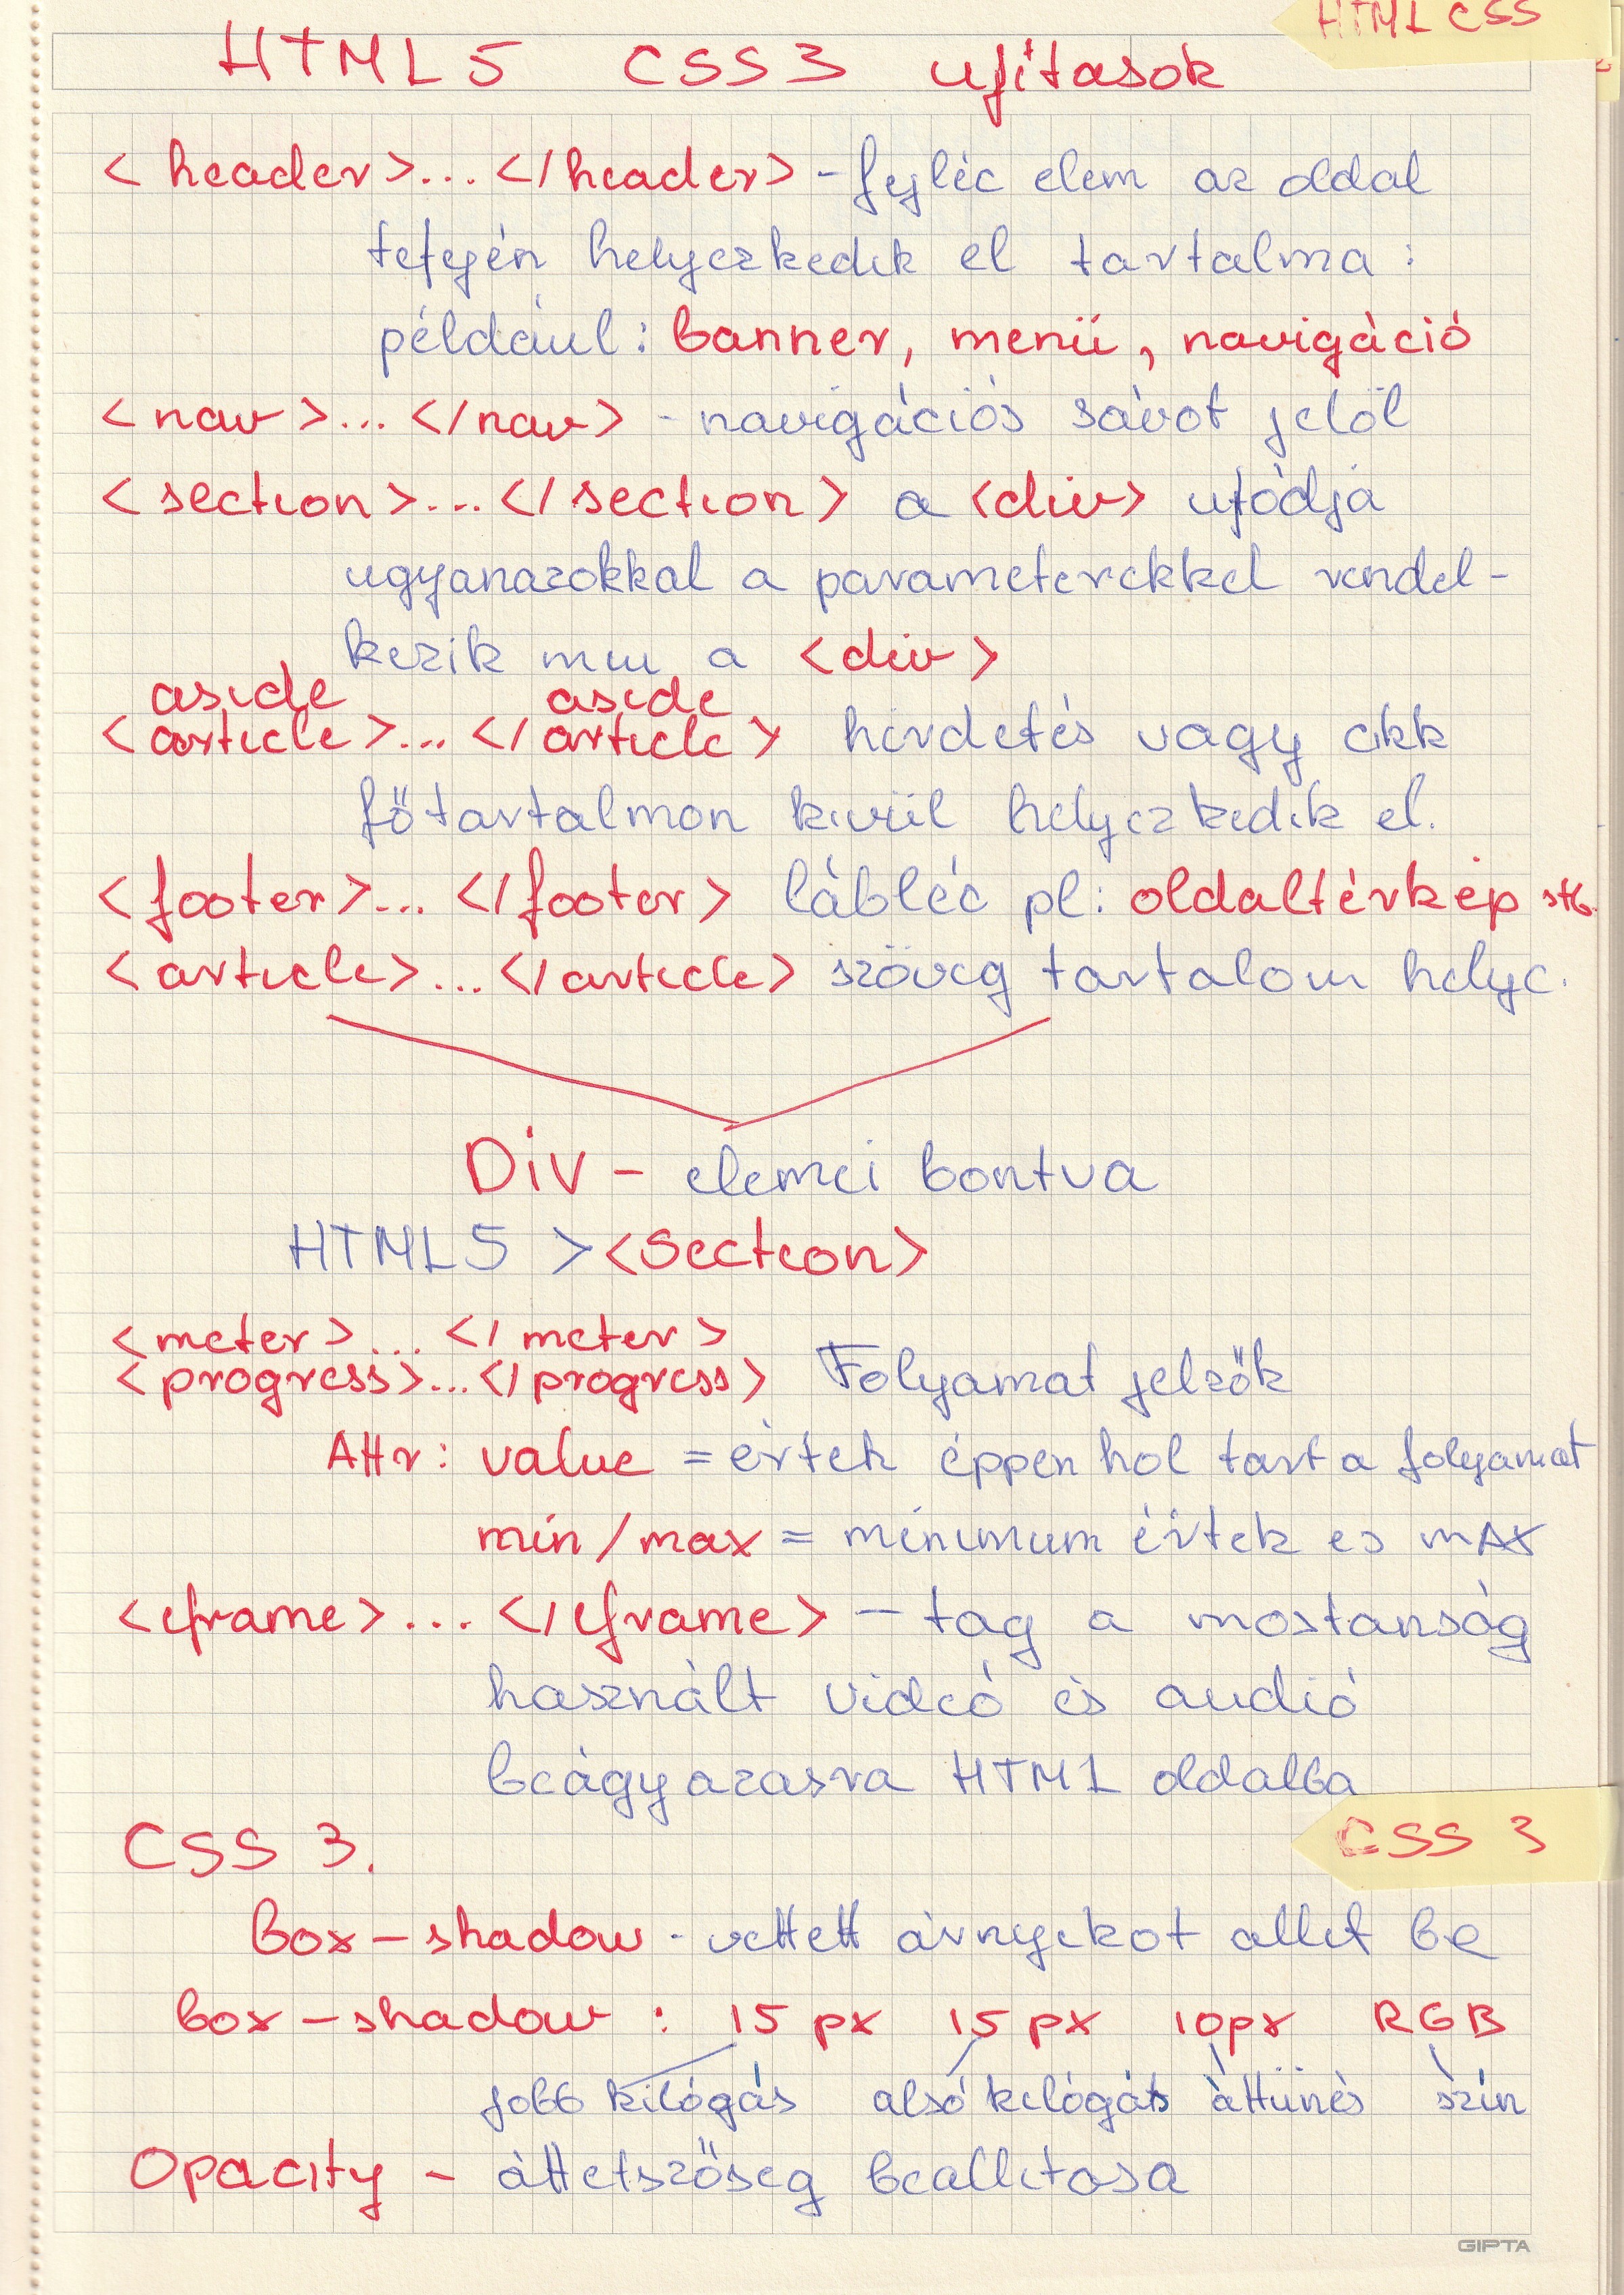 HTML CSS
HTML5 CSS3 ujítások
<header>... </header> - fejléc elem az oldal
tetején helyezkedik el tartalma :
például : banner, menü, navigáció
<nav>... </nav> - navigációs sávot jelöl
<section>... </section> a <div> utódja
ugyanazokkal a parameterekkel rendel-
kezik min a <div>
aside aside
<article>... </article> hirdetés vagy cikk
főtartalmon kivül helyezkedik el.
<footer>... </footer> lábléc pl: oldaltérkép stb.
<article>... </article> szöveg tartalom helye.
Div - elemei bontva
HTML5 > <Section>
<meter>... </meter>
<progress>... </progress> Folyamat jelzők
Attr: value = értek éppen hol tart a folyamat
min/max = minimum értek es MAX
<iframe>... </iframe> - tag a mostanság
használt videó és audió
beágyazasra HTML oldalba
CSS 3.
CSS 3
box-shadow - vettett árnyekot allit be
box-shadow : 15 px 15 px 10px RGB
jobb kilógás alsó kilógás áttünés szín
Opacity - áttetszőseg beallitasa
GIPTA